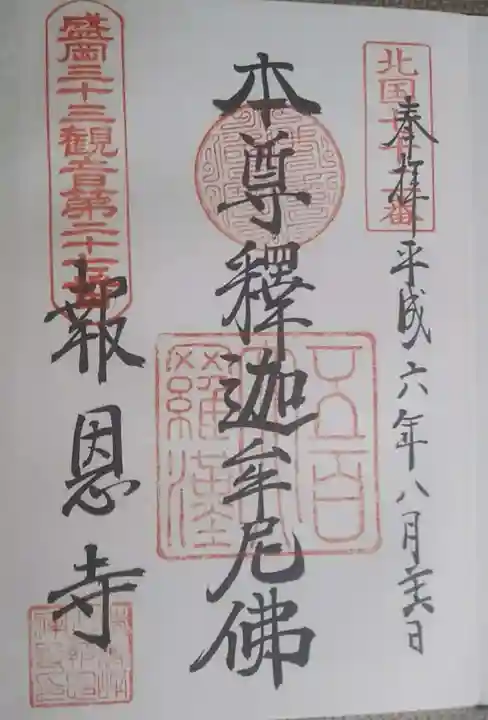 奉拝 平成六年八月 日
北国 番
本尊釋迦牟尼佛
五百
羅漢
盛岡三十三観音第二十七番
報恩寺